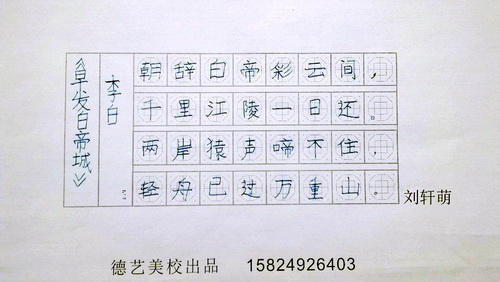 《早发白帝城》
李白
朝辞白帝彩云间，
千里江陵一日还。
两岸猿声啼不住，
轻舟已过万重山。
刘轩萌
德艺美校出品 15824926403